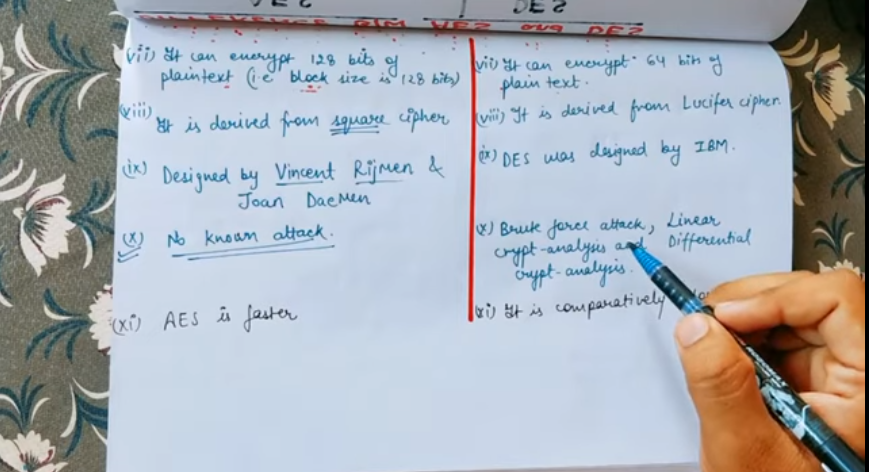 AES
DES
DIFFERENCE B/W AES and DES
(vii) It can encrypt 128 bits of
plaintext (i.e block size is 128 bits)
(viii)
It is derived from square cipher
(ix) Designed by Vincent Rijmen &
Joan Daemen
(x) No known attack.
(xi) AES is faster
(vii) It can encrypt 64 bits of
plain text.
(viii) It is derived from Lucifer cipher.
(ix) DES was designed by IBM.
(x) Brute force attack, Linear
crypt-analysis and Differential
crypt-analysis.
(xi) It is comparatively